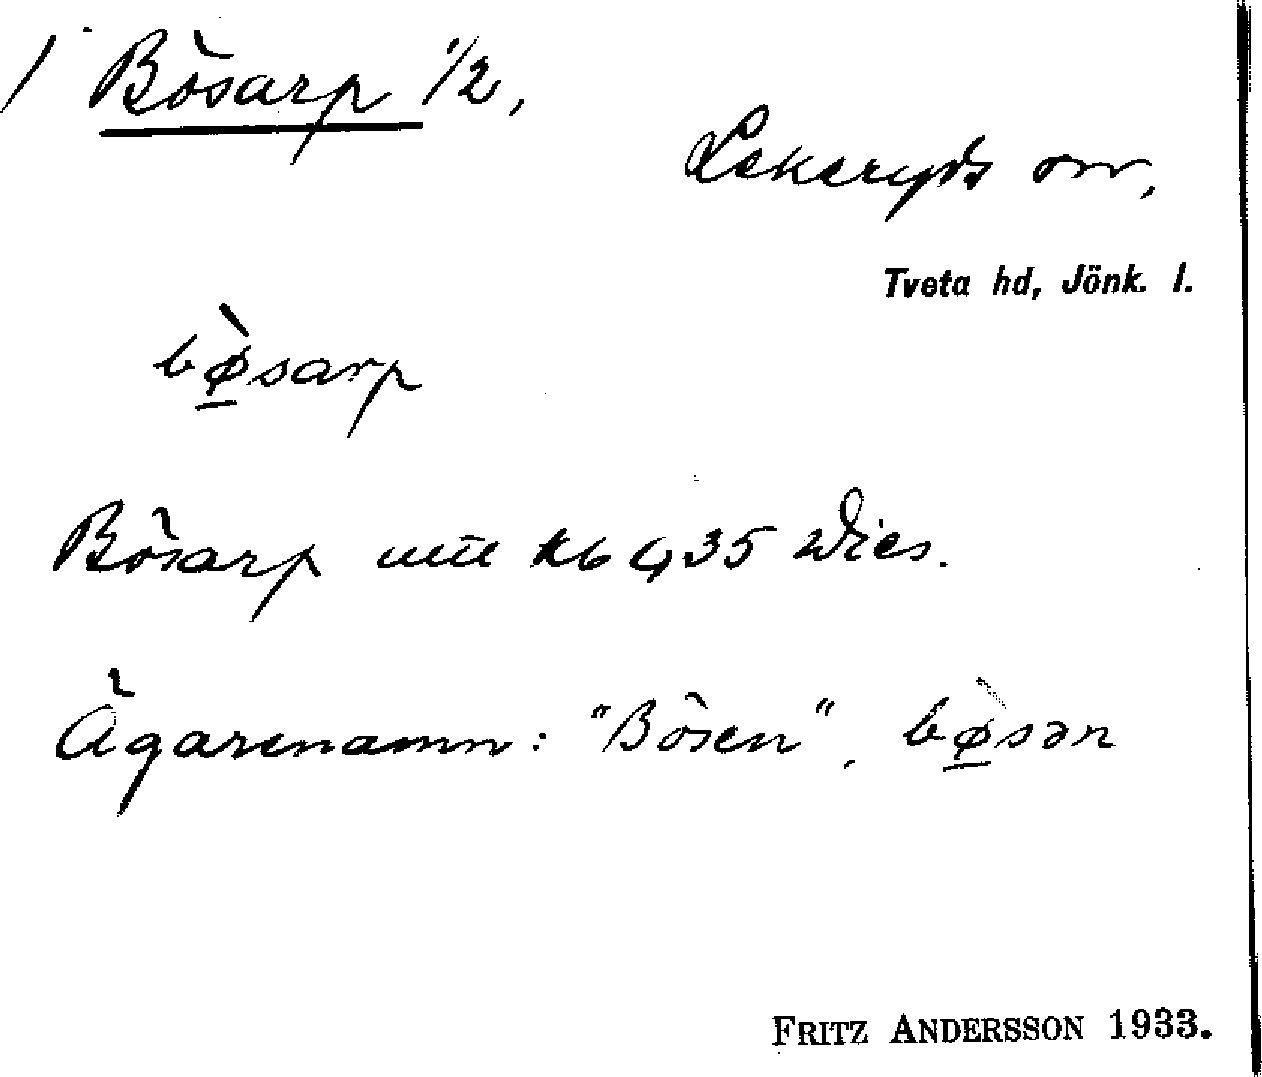 / Bösarp 1/2,
Lekeryds sn,
Tveta hd, Jönk. l.
bø̀sarp
Bösarp 435 Wies.
Ägarenamn: "Bösen", bø̀sən
FRITZ ANDERSSON 1933.